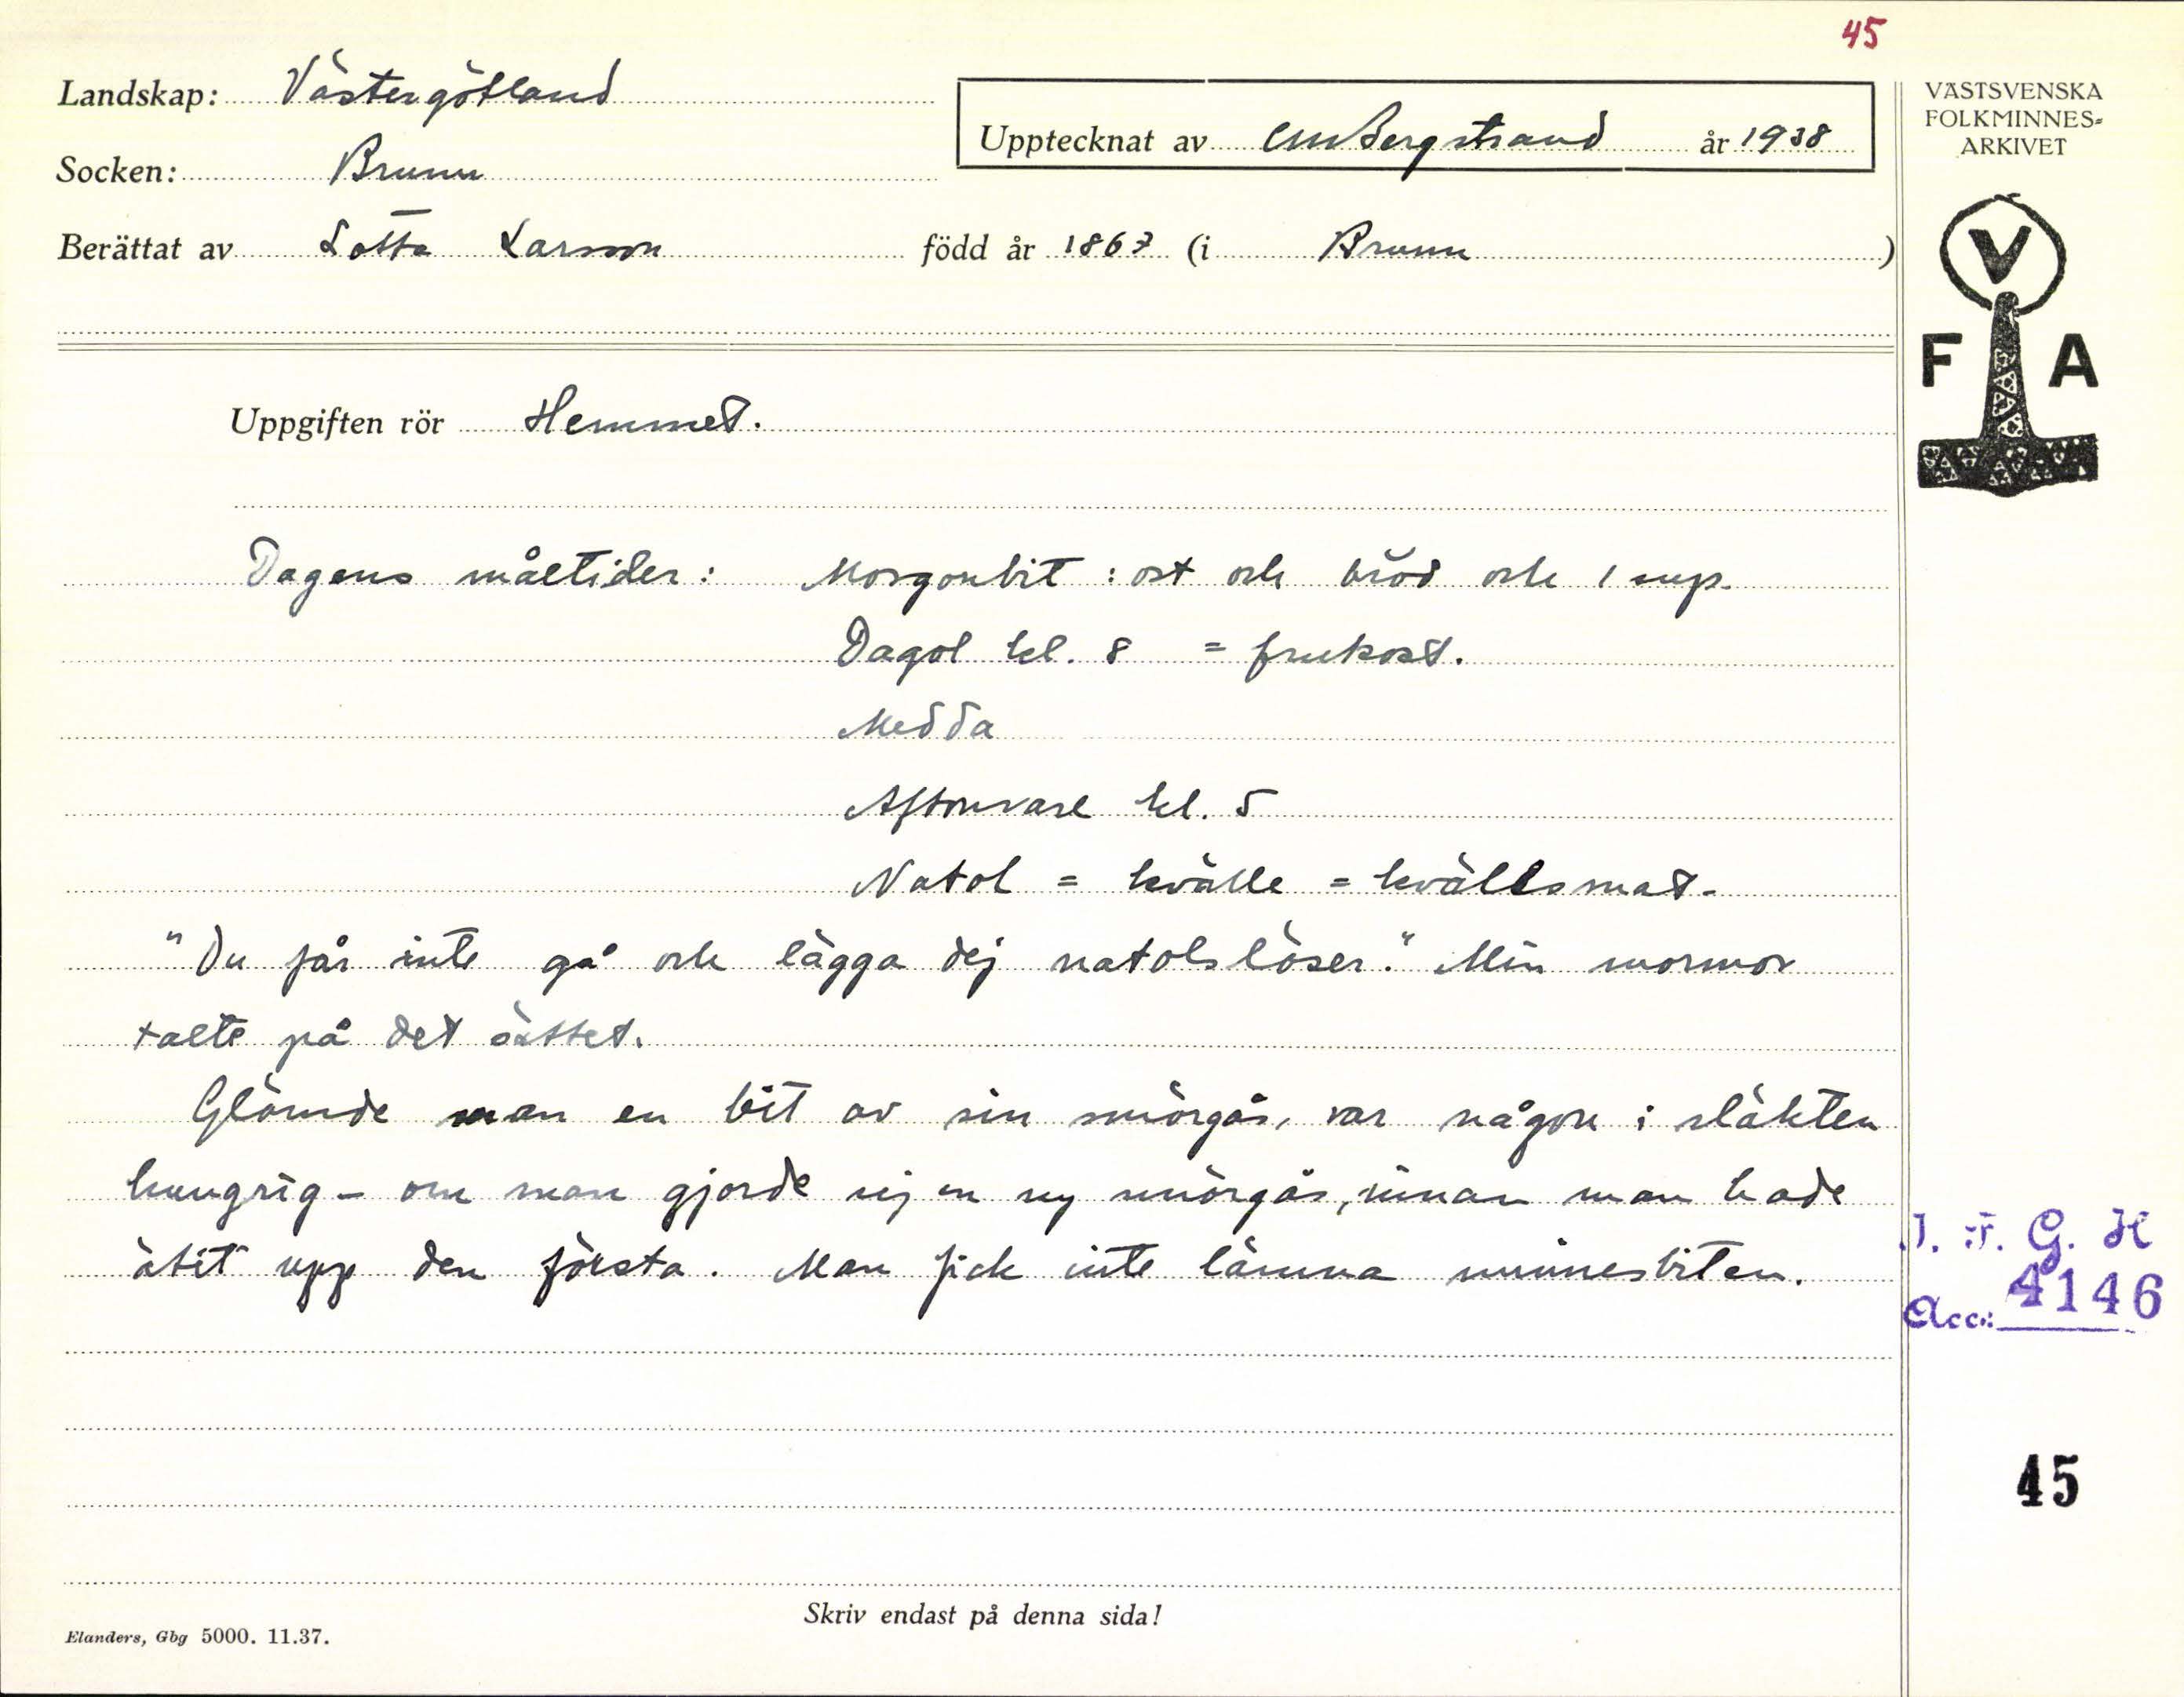 45
Landskap: Västergötland
Upptecknat av CM Bergstrand år 1938
VÄSTSVENSKA
FOLKMINNES=
ARKIVET
Socken: Brunn
Berättat av Lotta Larsson född år 1867 (i Brunn )
V
F A
Uppgiften rör Hemmet.
Dagens måltider: Morgonbit: ost och bröd och 1 sup.
Dagol kl. 8 = frukost.
Medda
Aftonvard kl. 5
Natol = kvälle = kvällsmat.
"Du får inte gå och lägga dej natolslöser." Min mormor
talte på det sättet.
Glömde man en bit av sin smörgås, var någon i släkten
hungrig - om man gjorde sej en ny smörgås, innan man hade
ätit upp den första. Man fick inte lämna minnesbiten.
I. F. G. H
Acc.: 4146
45
Skriv endast på denna sida!
Elanders, Gbg 5000. 11.37.